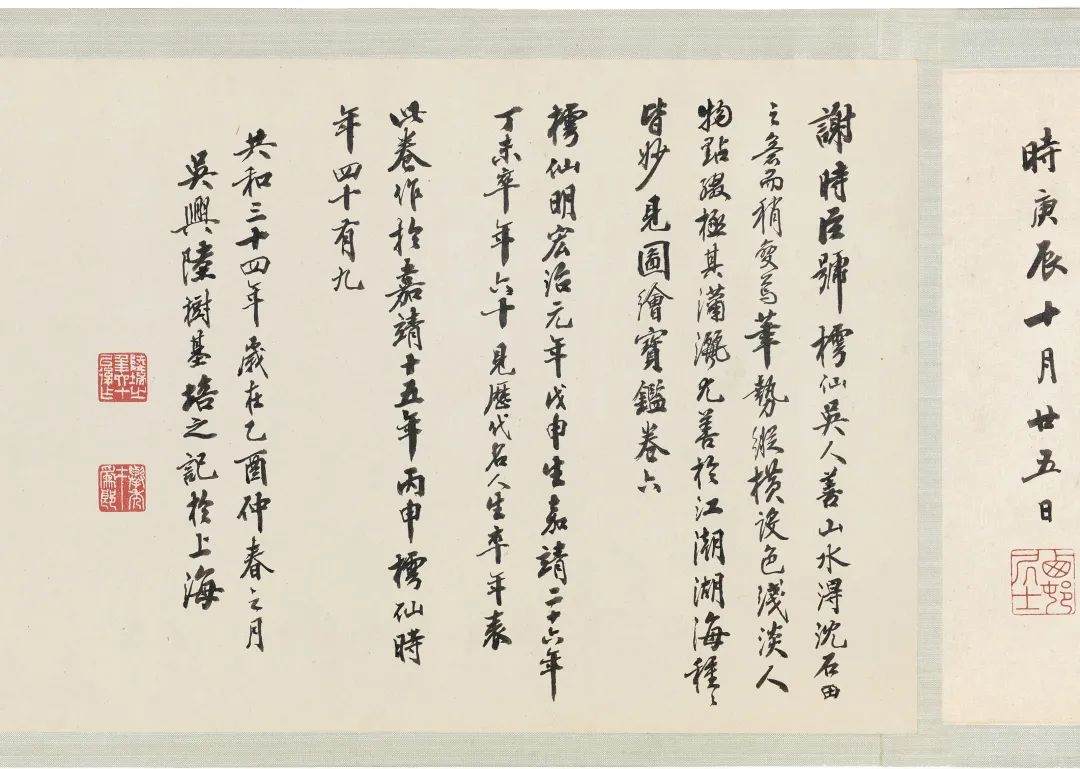 時庚辰十月廿五日
謝時臣號樗仙吳人善山水得沈石田
之意而稍變焉筆勢縱橫設色淺淡人
物點綴極其瀟灑尤善於江潮湖海種〻
皆妙見圖繪寶鑑卷六
樗仙明宏治元年戊申生嘉靖二十六年
丁未卒年六十見歷代名人生卒年表
此卷作於嘉靖十五年丙申樗仙時
年四十有九
共和三十四年歲在乙酉仲春之月
吳興陸樹基培之記於上海